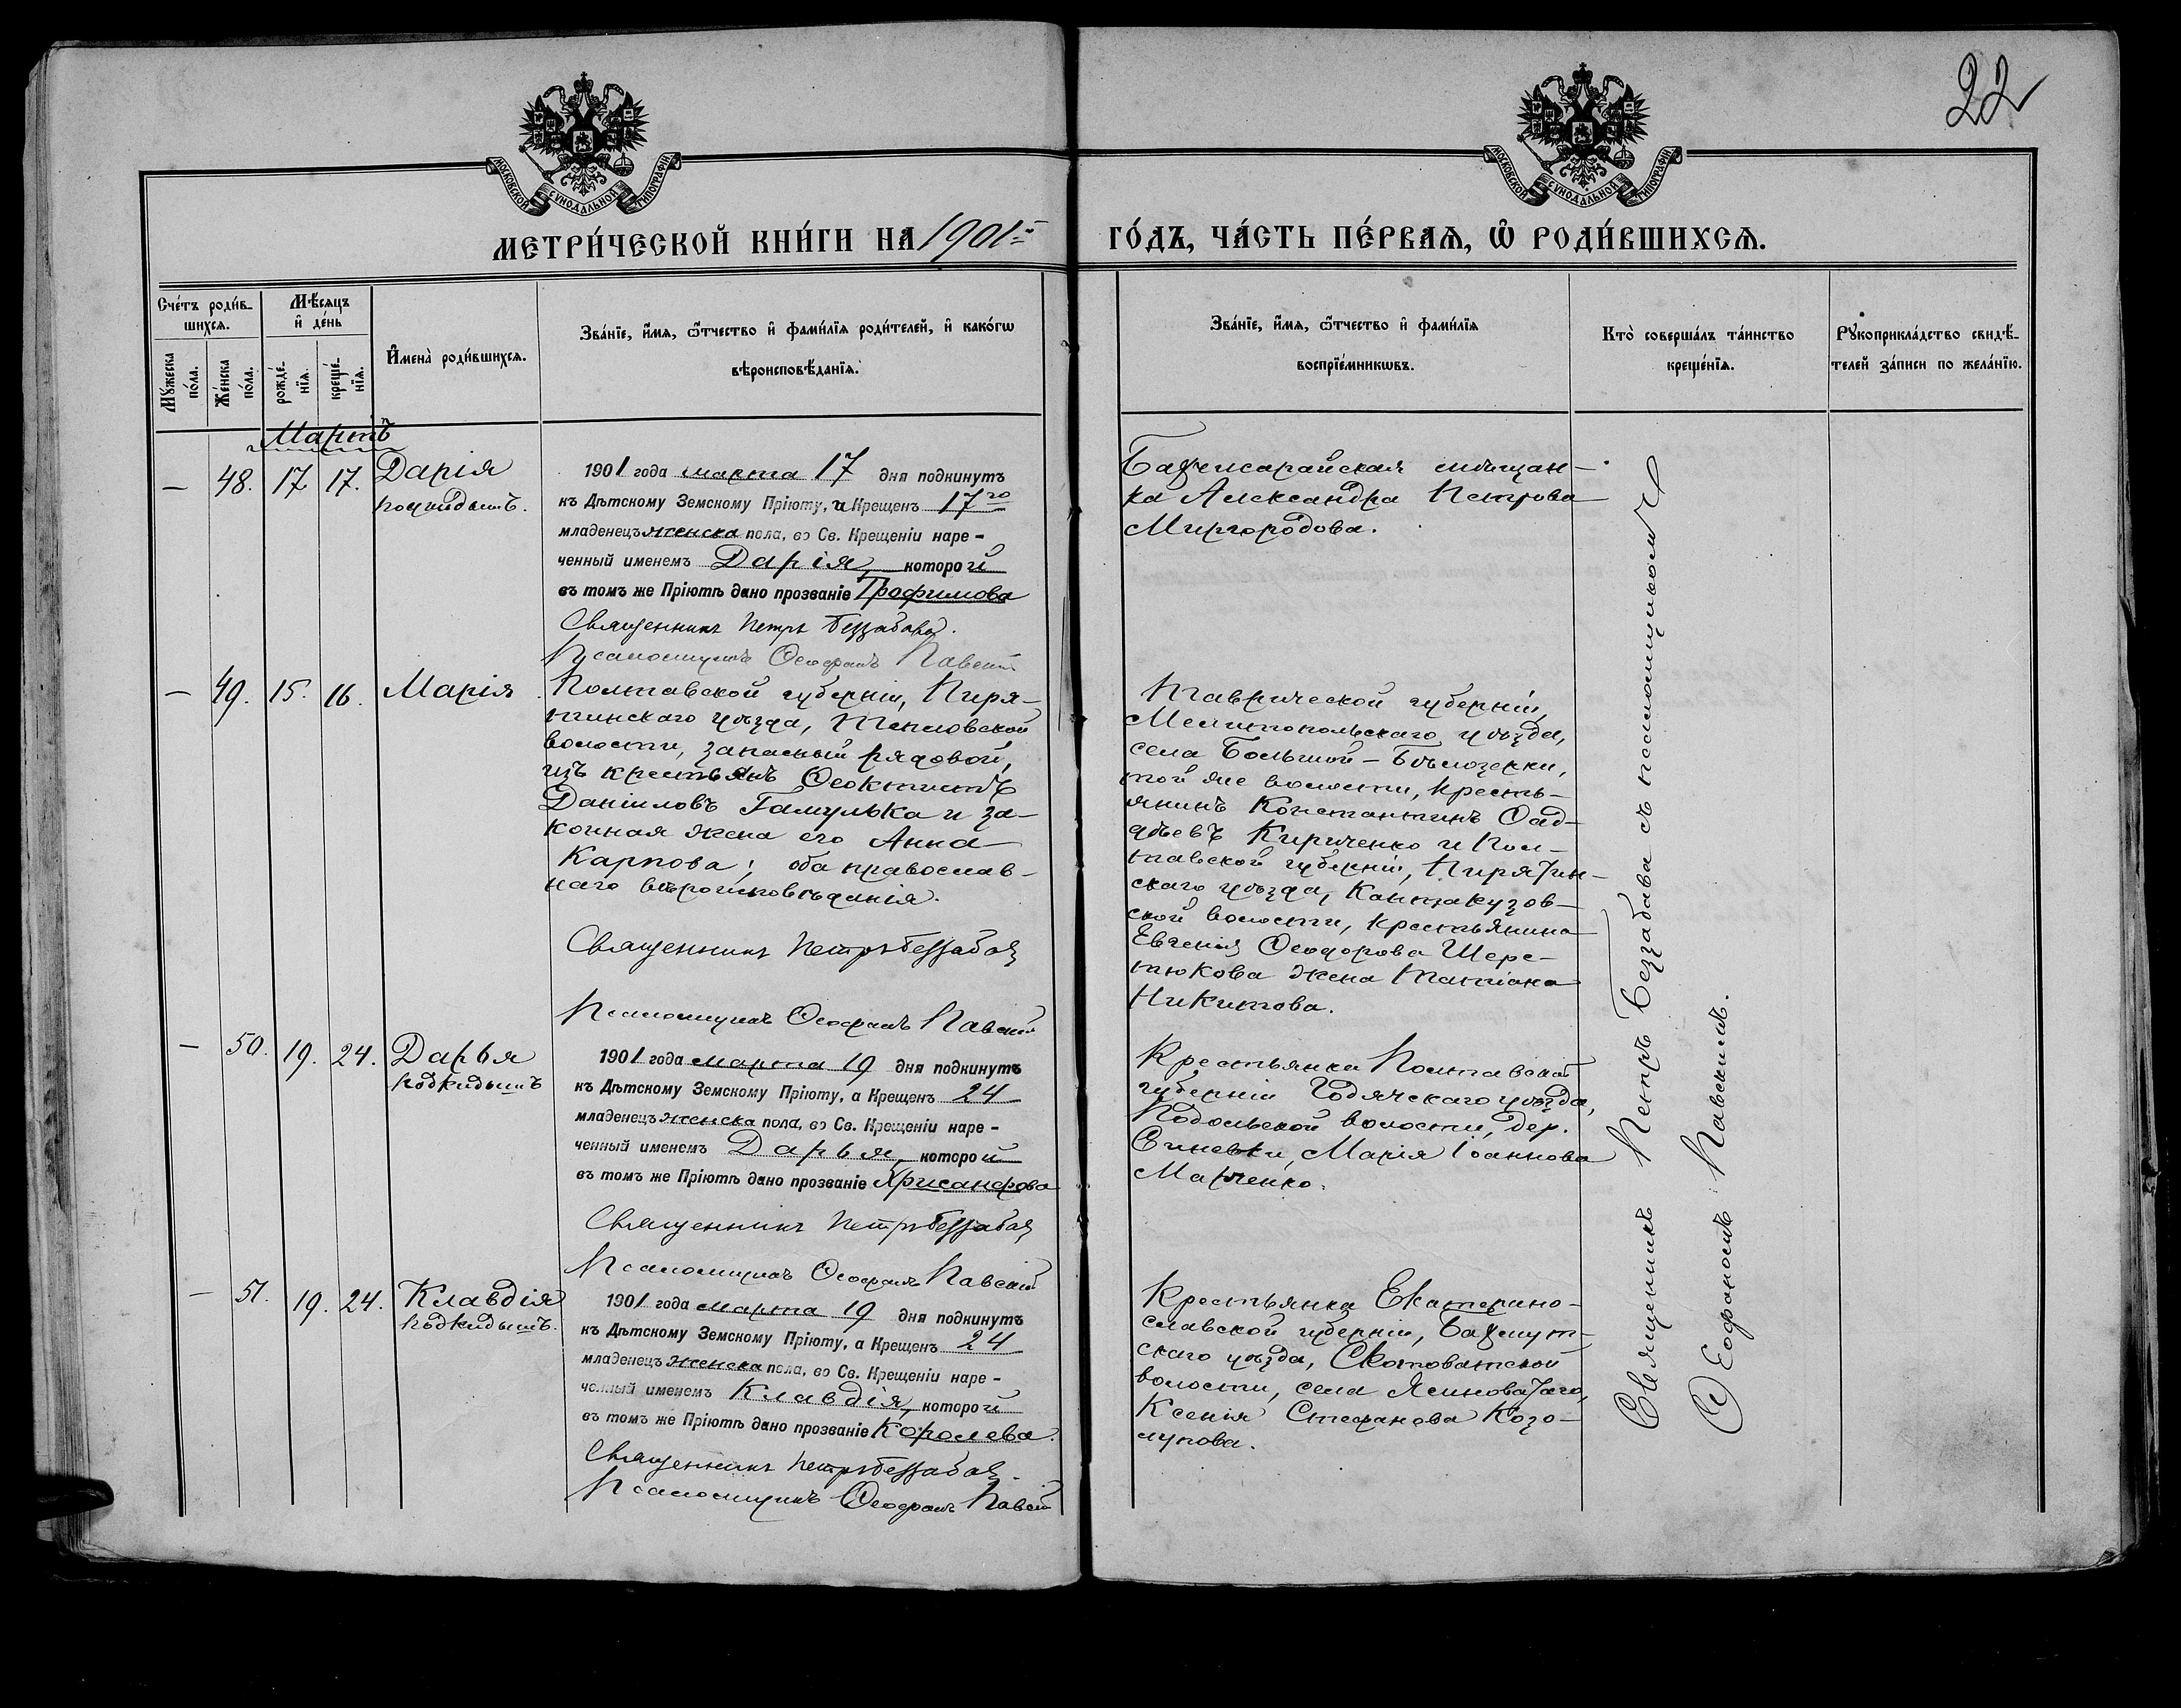 22
МОСКОВСКОЙ СѴНОДАЛЬНОЙ ТИПОГРАФІИ
МОСКОВСКОЙ СѴНОДАЛЬНОЙ ТИПОГРАФІИ
МЕТРИ́ЧЕСКОЙ КНИ́ГИ НА 1901-й ГО́ДЪ, ЧА́СТЬ ПЕ́РВАѦ, Ѡ҆ РОДИ́ВШИХСѦ.
Сче́тъ роди́в-
шихсѧ.
Мꙋжеска по́ла.
Же́нска по́ла.
Мѣ́сѧцъ
и҆ де́нь
рожде́-
нїѧ.
креще́-
нїѧ.
И҆мена̀ роди́вшихсѧ.
Зва́нїе, и҆́мѧ, ѻ҆́тчество и҆ фами́лїѧ роди́телей, и҆ како́гѡ
вѣроисповѣ́данїѧ.
Зва́нїе, и҆́мѧ, ѻ҆́тчество и҆ фами́лїѧ
воспрїе́мникѡвъ.
Кто̀ соверша́лъ та́инство
креще́нїѧ.
Рꙋкоприкла́дство свидѣ́-
телей за́писи по жела́нїю.
Мартъ
— 48. 17 17. Дарія
подкидышъ.
1901 года марта 17 дня подкинутъ
къ Дѣтскому Земскому Пріюту, а Крещенъ 17го
младенецъ женска пола, во Св. Крещеніи наре-
ченный именемъ Дарія, которой
въ томъ же Пріютѣ дано прозваніе Трофимова
Священникъ Петръ Беззабава.
Псаломщикъ Ѳеофанъ Павскій
Бахчисарайская мѣщан-
ка Александра Петрова
Миргородова.
— 49. 15. 16. Марія
Полтавской губерніи, Пиря-
тинскаго уѣзда, Тепловской
волости, запасный рядовой,
изъ крестьянъ Ѳеоктистъ
Даниловъ Гамулька и за-
конная жена его Анна
Карпова; оба православ-
наго вѣроисповѣданія.
Священникъ Петръ Беззабава
Псаломщикъ Ѳеофанъ Павскій
Таврической губерніи,
Мелитопольскаго уѣзда,
села Большой-Бѣлозерки,
той же волости, кресть-
янинъ Константинъ Ѳад-
дѣевъ Кириченко и Пол-
тавской губерніи, Пирятин-
скаго уѣзда, Кантакузов-
ской волости, крестьянина
Евгенія Ѳеодорова Шере-
тюкова жена Татіана
Никитова.
— 50. 19. 24. Дарья
подкидышъ
1901 года марта 19 дня подкинутъ
къ Дѣтскому Земскому Пріюту, а Крещенъ 24
младенецъ женска пола, во Св. Крещеніи наре-
ченный именемъ Дарья, которой
въ томъ же Пріютѣ дано прозваніе Хрисанфова
Священникъ Петръ Беззабава
Псаломщикъ Ѳеофанъ Павскій
Крестьянка Полтавской
губерніи Годячскаго уѣзда,
Подольской волости, дер.
Синевки, Марія Іоаннова
Марченко.
— 51. 19. 24. Клавдія
подкидышъ.
1901 года марта 19 дня подкинутъ
къ Дѣтскому Земскому Пріюту, а Крещенъ 24
младенецъ женска пола, во Св. Крещеніи наре-
ченный именемъ Клавдія, которой
въ томъ же Пріютѣ дано прозваніе Королева.
Священникъ Петръ Беззабава.
Псаломщикъ Ѳеофанъ Павскій
Крестьянка Екатерино-
славской губерніи, Бахмут-
скаго уѣзда, Скотоватской
волости, села Ясиноватаго,
Ксенія Стефанова Козо-
лупова.
Священникъ Петръ Беззабава съ псаломщикомъ
Ѳеофаномъ Павскимъ.